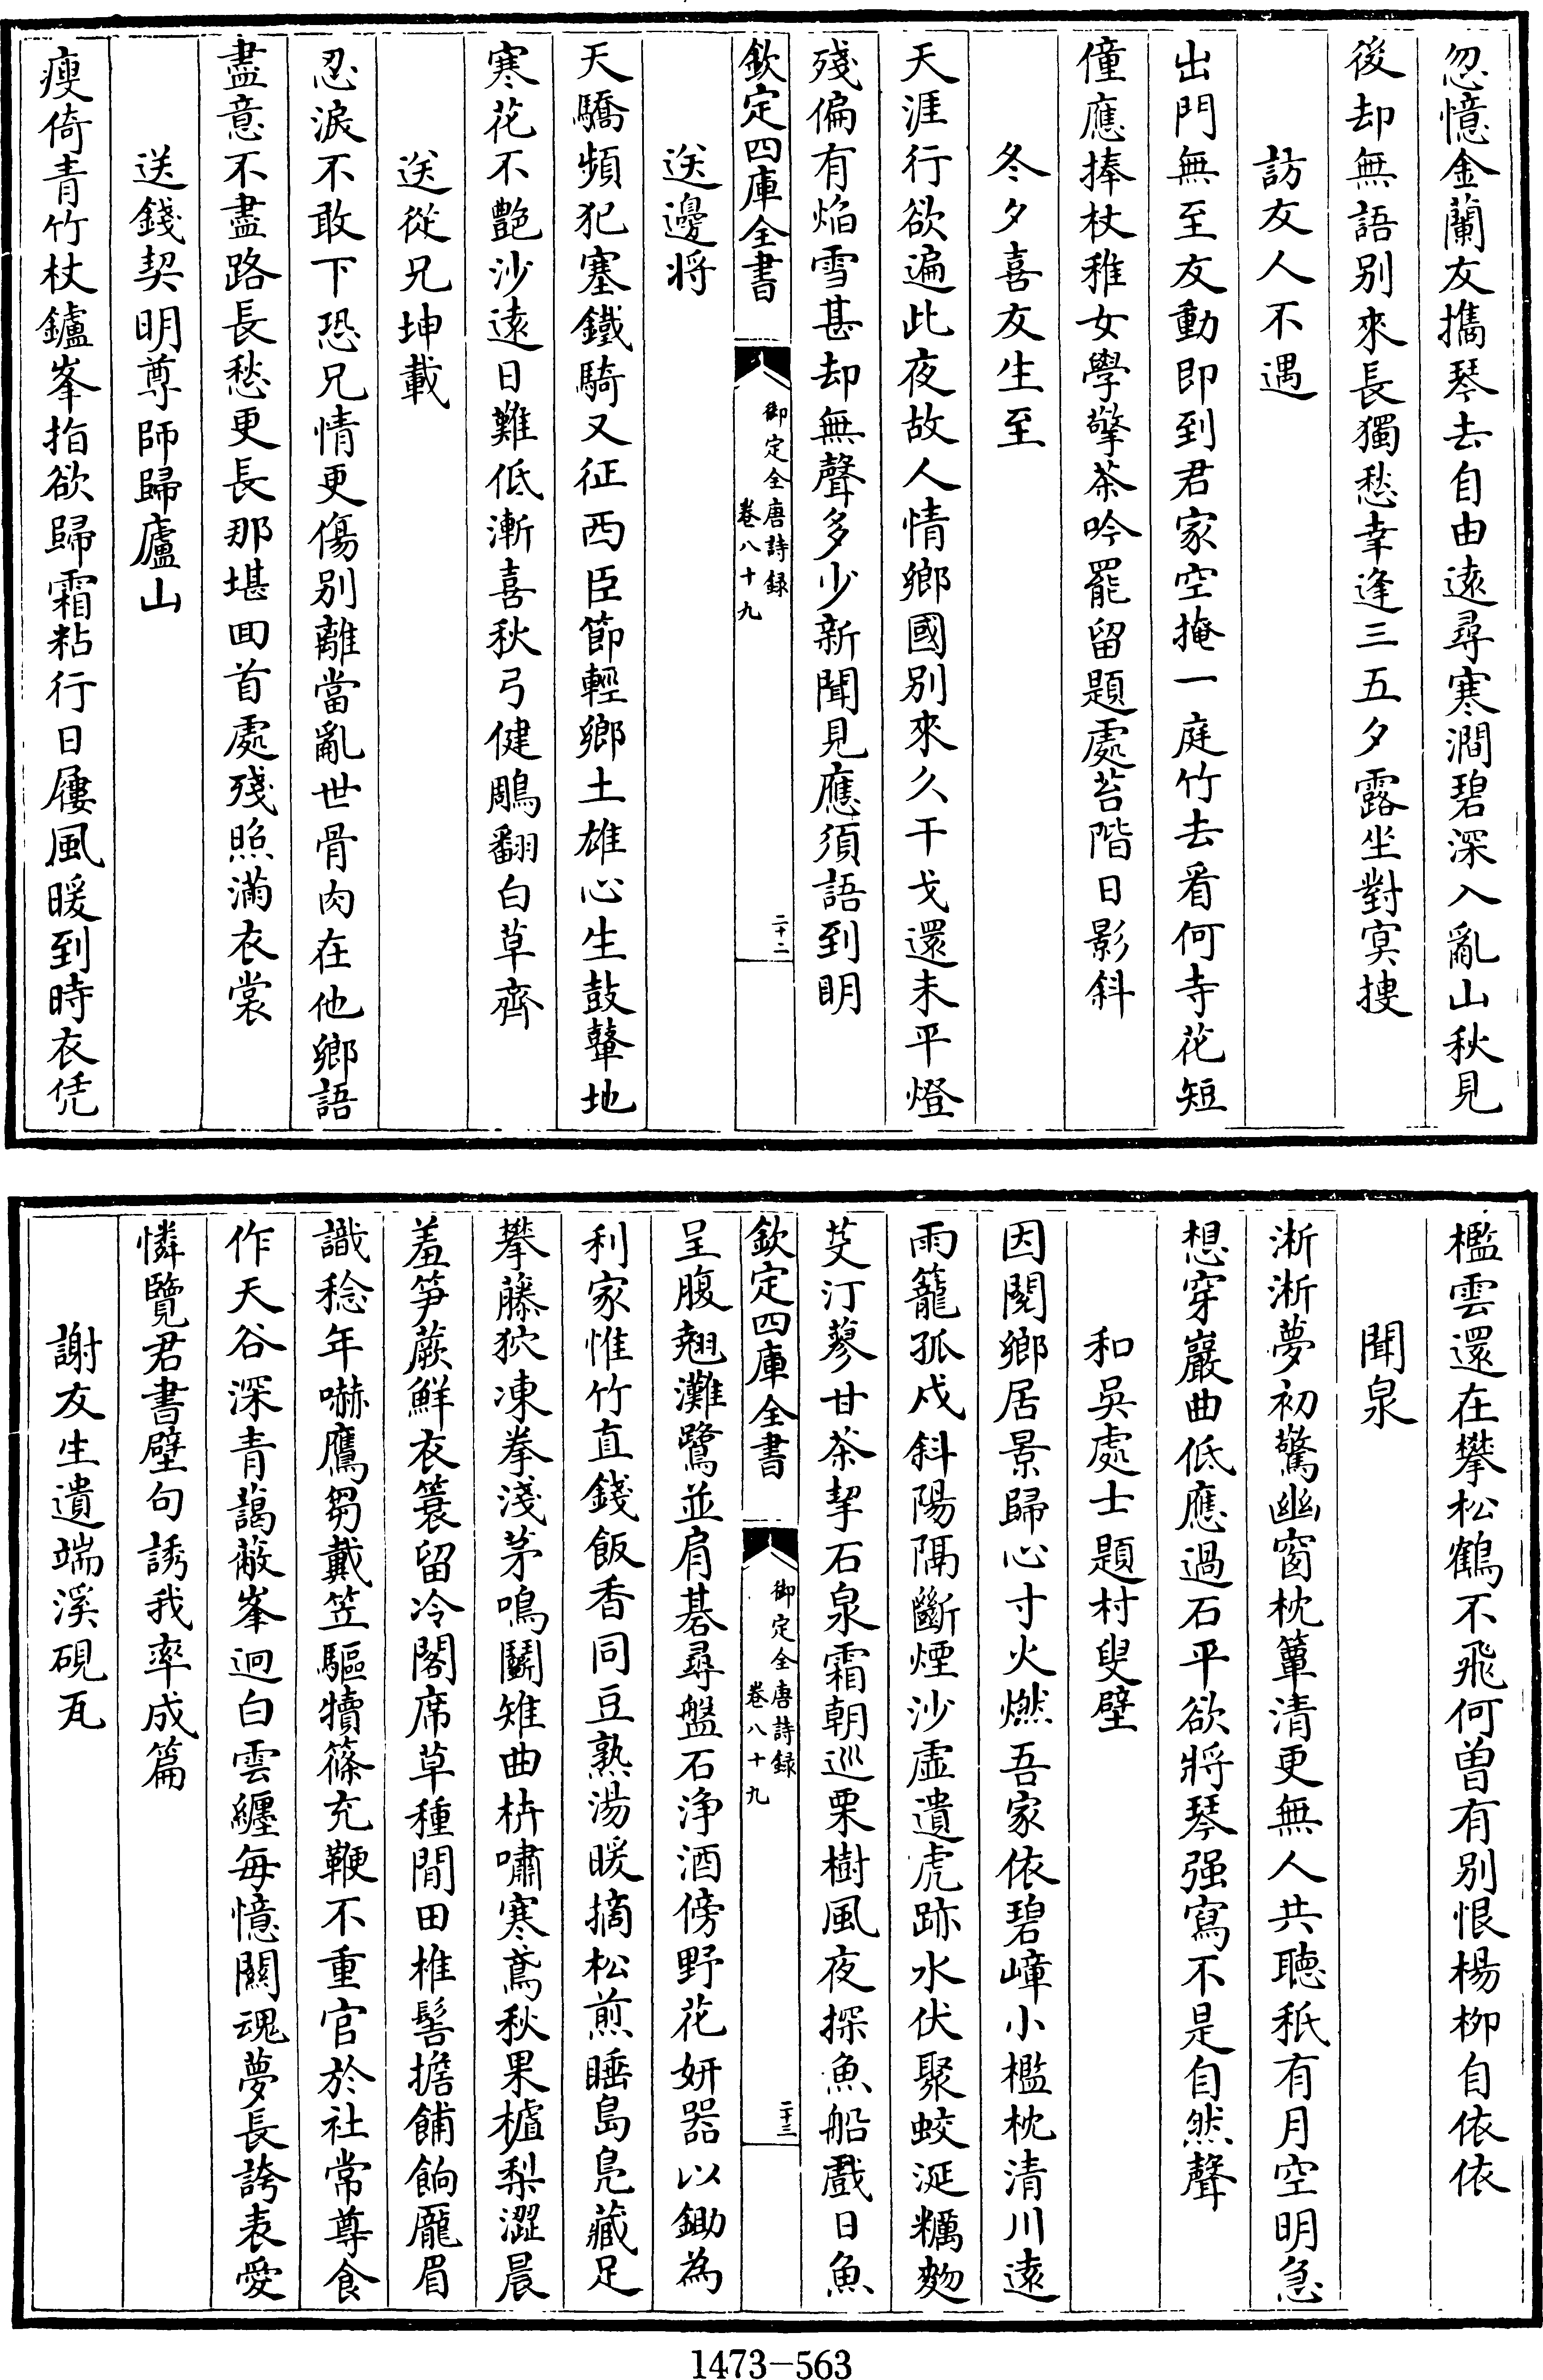 忽憶金蘭友攜琴去自由遠尋寒澗碧深入亂山秋見
後却無語别來長獨愁幸逢三五夕露坐對㝠搜
訪友人不遇
出門無至友動即到君家空掩一庭竹去看何寺花短
僮應捧杖稚女學擎茶吟罷留題處苔階日影斜
冬夕喜友生至
天涯行欲遍此夜故人情鄉國别來久干戈還未平燈
殘偏有焰雪甚却無聲多少新聞見應須語到明
欽定四庫全書
御定全唐詩録
卷八十九
二十二
送邊將
天驕頻犯塞鐵騎又征西臣節輕鄉土雄心生鼓鼙地
寒花不艷沙遠日難低漸喜秋弓健鵰翻白草齊
送從兄坤載
忍淚不敢下恐兄情更傷别離當亂世骨肉在他鄉語
盡意不盡路長愁更長那堪回首處殘照滿衣裳
送錢契明尊師歸廬山
瘦倚青竹杖鑪峯指欲歸霜粘行日屨風暖到時衣凭
檻雲還在攀松鶴不飛何曽有别恨楊栁自依依
聞泉
淅淅夢初驚幽窗枕簟清更無人共聽秖有月空明急
想穿巖曲低應過石平欲將琴强寫不是自然聲
和吳處士題村叟壁
因閱鄉居景歸心寸火燃吾家依碧嶂小檻枕清川遠
雨籠孤戍斜陽隔斷煙沙虛遺虎跡水伏聚蛟涎糲麫
芟汀蓼甘茶挈石泉霜朝巡栗樹風夜探魚船戲日魚
呈腹翹灘鷺並肩碁尋盤石浄酒傍野花妍器以鋤為
利家惟竹直錢飯香同豆熟湯暖摘松煎睡島鳧藏足
攀藤狖凍拳淺茅鳴鬭雉曲枿嘯寒鳶秋果樝梨澀晨
羞笋蕨鮮衣蓑留冷閣席草種閒田椎髻擔餔餉龎眉
識稔年嚇鷹芻戴笠驅犢篠充鞭不重官於社常尊食
作天谷深青藹蔽峯迥白雲纒每憶闗魂夢長誇表愛
憐覽君書壁句誘我率成篇
謝友生遺端溪硯瓦
1473-563